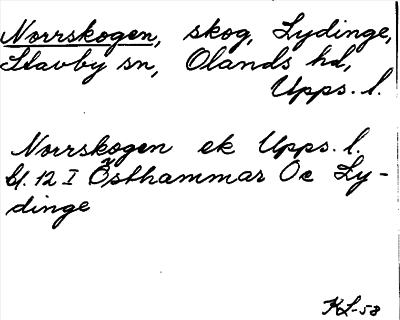 Norrskogen, skog, Lydinge,
Stavby sn, Olands hd,
Upps. l.
Norrskogen ek Upps. l.
bl. 12 I Östhammar Öe Ly-
dinge
KL-58